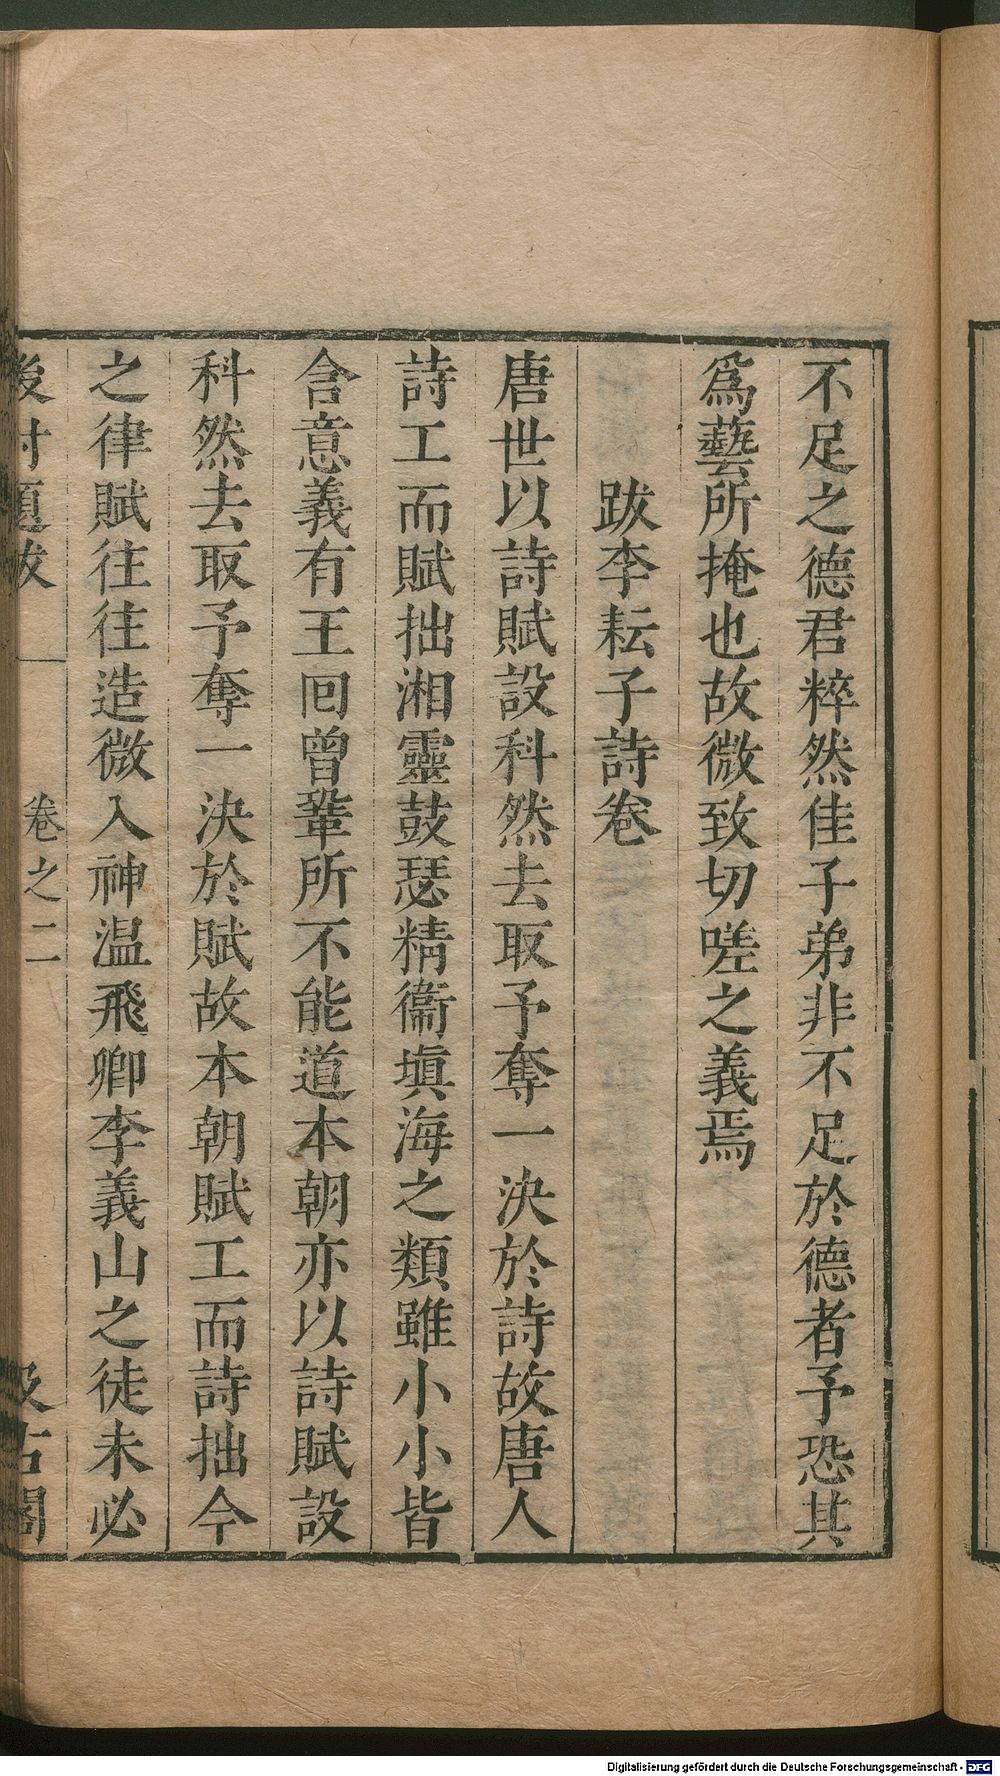 不足之德君粹然佳子弟非不足於德者予恐其
爲藝所掩也故微致切嗟之義焉
跋李耘子詩卷
唐世以詩賦設科然去取予奪一決於詩故唐人
詩工而賦拙湘靈鼓瑟精衞塡海之類雖小小皆
含意義有王回曾鞏所不能道本朝亦以詩賦設
科然去取予奪一決於賦故本朝賦工而詩拙今
之律賦往往造微入神温飛卿李義山之徒未必
後村題跋 卷之二 汲古閣
Digitalisierung gefördert durch die Deutsche Forschungsgemeinschaft - DFG